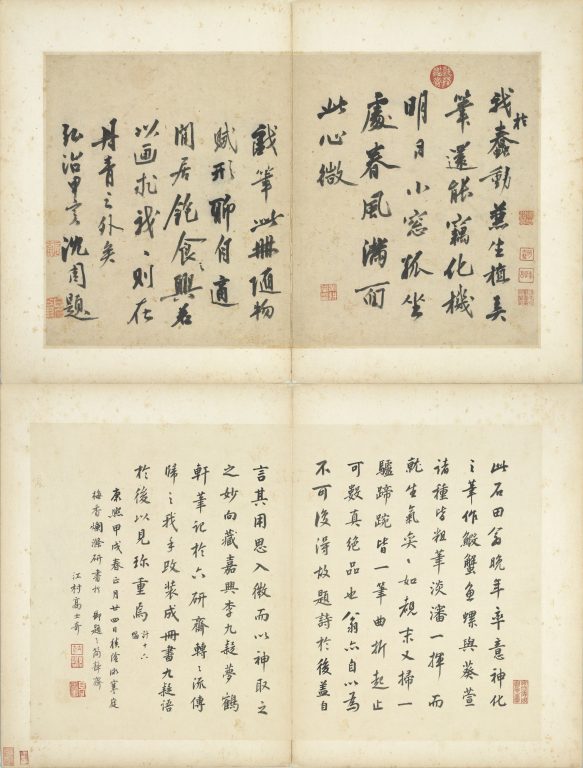 我於蠢動兼生植弄
筆還能竊化機
明日小窓孤坐
處春風滿面
此心微
戲筆此冊隨物
賦形聊自適
閒居飽食之興若
以画求我〻則在
丹青之外矣
弘治甲寅沈周題
此石田翁晚年率意神化
之筆作鰕蟹魚螺與葵萱
諸種皆粗筆淡瀋一揮而
就生氣奕〻如覩末又掃一
驢蹄踠皆一筆曲折起止
可數真絕品也翁亦自以為
不可復得故題詩於後蓋自
言其用思入微而以神取之
之妙向藏嘉興李九疑夢鶴
軒筆記於六研齋轉〻流傳
歸之我手改裝成冊書九疑語
於後以見珍重焉 計十六幅
康熙甲戌春正月廿四日積陰冰寒庭
梅香滌研書於 御題 簡靜齋
江村高士奇